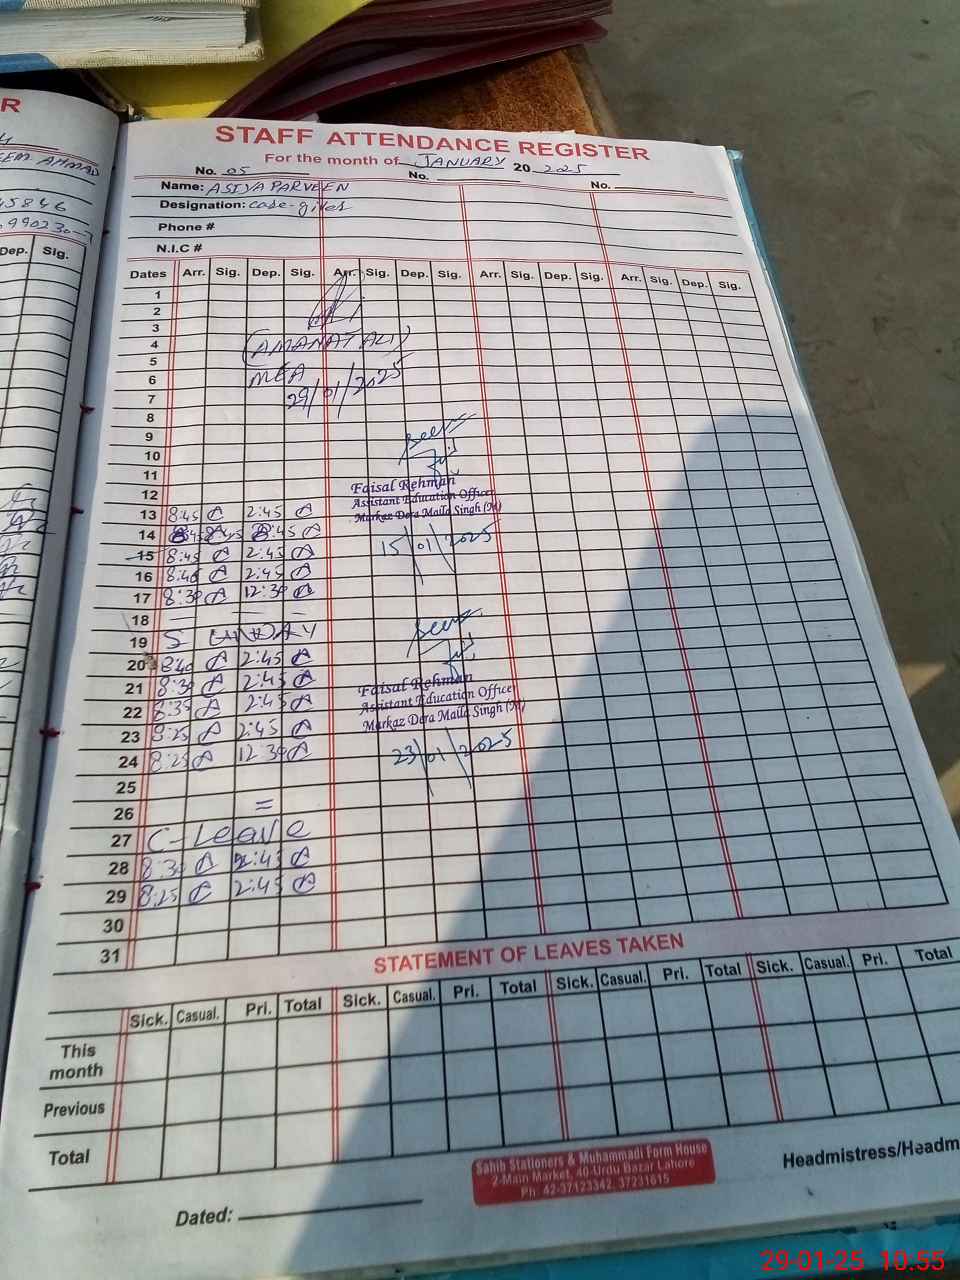 R
EEM AHMAD
45846
990230-7
Dep. Sig.
STAFF ATTENDANCE REGISTER
For the month of JANUARY 20 2025
No. 05 No. No.
Name: ASIYA PARVEEN
Designation: care-giver
Phone #
N.I.C #
Dates Arr. Sig. Dep. Sig. Arr. Sig. Dep. Sig. Arr. Sig. Dep. Sig. Arr. Sig. Dep. Sig.
1
2
3
4 (AMANAT ALI)
5
6 MEA
7 29/01/2025
8
9 Seen
10
11
Faisal Rehman
12 Assistant Education Officer
Markaz Dera Malla Singh (M)
13 8:45 2:45
14 8:45 2:45
15/01/2025
15 8:45 2:45
16 8:40 2:45
17 8:30 12:30
18
19 SUNDAY Seen
20 8:40 2:45
21 8:30 2:45
Faisal Rehman
Assistant Education Officer
22 8:35 2:45
Markaz Dera Malla Singh (M)
23 8:25 2:45
23/01/2025
24 8:25 12:30
25
26 =
27 C-Leave
28 8:30 2:45
29 8:25 2:45
30
31
STATEMENT OF LEAVES TAKEN
Sick. Casual. Pri. Total Sick. Casual. Pri. Total Sick. Casual. Pri. Total Sick. Casual. Pri. Total
This month
Previous
Total
Sahib Stationers & Muhammadi Form House
2-Main Market, 40-Urdu Bazar Lahore
Ph: 42-37123342, 37231615
Headmistress/Headm
Dated:
29-01-25 10:55